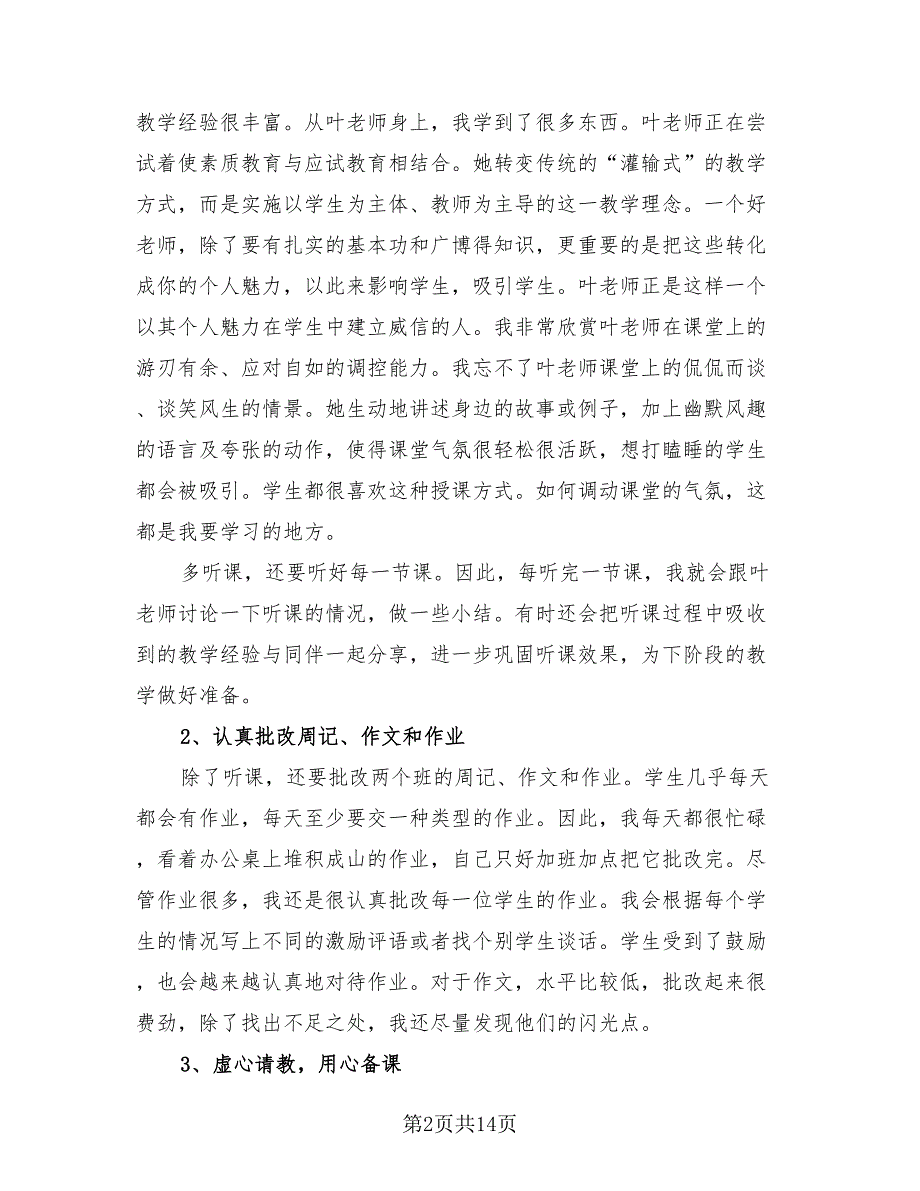 教学经验很丰富。从叶老师身上，我学到了很多东西。叶老师正在尝
试着使素质教育与应试教育相结合。她转变传统的“灌输式”的教学
方式，而是实施以学生为主体、教师为主导的这一教学理念。一个好
老师，除了要有扎实的基本功和广博得知识，更重要的是把这些转化
成你的个人魅力，以此来影响学生，吸引学生。叶老师正是这样一个
以其个人魅力在学生中建立威信的人。我非常欣赏叶老师在课堂上的
游刃有余、应对自如的调控能力。我忘不了叶老师课堂上的侃侃而谈
、谈笑风生的情景。她生动地讲述身边的故事或例子，加上幽默风趣
的语言及夸张的动作，使得课堂气氛很轻松很活跃，想打瞌睡的学生
都会被吸引。学生都很喜欢这种授课方式。如何调动课堂的气氛，这
都是我要学习的地方。
多听课，还要听好每一节课。因此，每听完一节课，我就会跟叶
老师讨论一下听课的情况，做一些小结。有时还会把听课过程中吸收
到的教学经验与同伴一起分享，进一步巩固听课效果，为下阶段的教
学做好准备。
2、认真批改周记、作文和作业
除了听课，还要批改两个班的周记、作文和作业。学生几乎每天
都会有作业，每天至少要交一种类型的作业。因此，我每天都很忙碌
，看着办公桌上堆积成山的作业，自己只好加班加点把它批改完。尽
管作业很多，我还是很认真批改每一位学生的作业。我会根据每个学
生的情况写上不同的激励评语或者找个别学生谈话。学生受到了鼓励
，也会越来越认真地对待作业。对于作文，水平比较低，批改起来很
费劲，除了找出不足之处，我还尽量发现他们的闪光点。
3、虚心请教，用心备课
第2页共14页